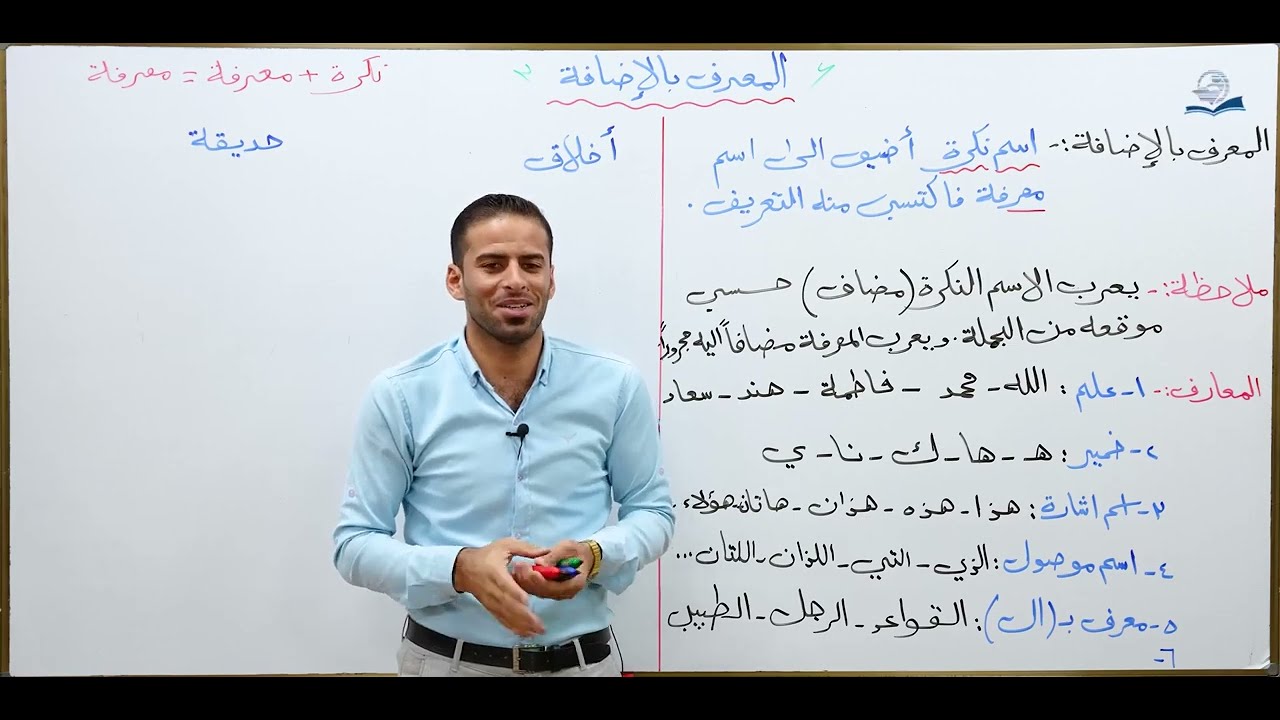 المعرف بالإضافة
نكرة + معرفة = معرفة
المعرف بالإضافة :- اسم نكرة أضيف الى اسم
معرفة فاكتسب منه التعريف .
ملاحظة :- يعرب الاسم النكرة (مضاف) حسب
موقعه من الجملة . ويعرب المعرفة مضافاً اليه مجروراً
المعارف :- ١- علم : الله - محمد - فاطمة - هند - سعاد
٢- ضمير : هـ - ها - ك - نا - ي
٣- اسم اشارة : هذا - هذه - هذان - هاتان - هؤلاء .
٤- اسم موصول : الذي - التي - اللذان - اللتان ...
٥- معرف بـ (ال) : القواعد - الرجل - الطبيب
٦-
أخلاق
حديقة